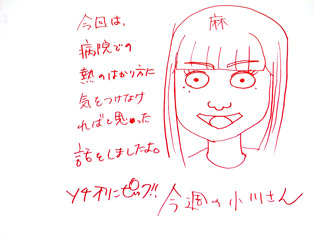 今回は、
病院での
熱のはかり方に
気をつけなけ
ればと思った
話をしましたよ。
麻
今週の小川さん